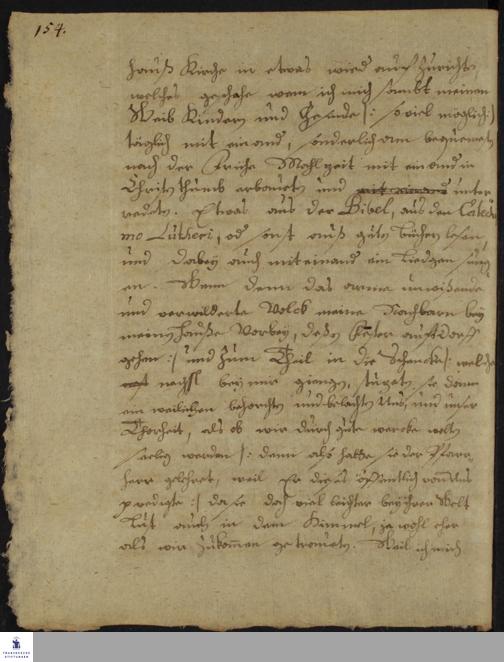 154.
hauß Kirche in etwas wird auff Zurichten
welches geschahe wenn ich mich sambt meinem
Weib Kindern und Gesinde /: so viel möglich :/
täglich mit einand, sonderlich am bequemsten
nach der Mahlzeit mit einand in
Christenthumb erbaueten und unter
redeten. Etwas aus der Bibel, aus dem Catechis
mo Lutheri, od sonst auß guten büchern lasen
und dabey auch miteinand ein Liedgen sungen
Wann denn das arme unwißende
und verwilderte Volck meine Nachbarn bey
meinem Hauße Vorbey, auff Dorff
gehen :/ und zum Theil in die Schencke /: welche
negst bey mir giengen, sie dann
ein weilichen behorchten und belachten Uns, und unser
Thorheit, als ob wir durch gute wercke wolten
seelig werden /: denn also hatte sie der Pfarr
herr gelehret, weil Er dieses öffentlich von Uns
predigte :/ da sie doch viel leichter bey ihrer Welt
Lust auch in den Himmel, ja wohl eher
als wir Zukommen getraueten. Weil ich mich
FRANCKESCHE STIFTUNGEN